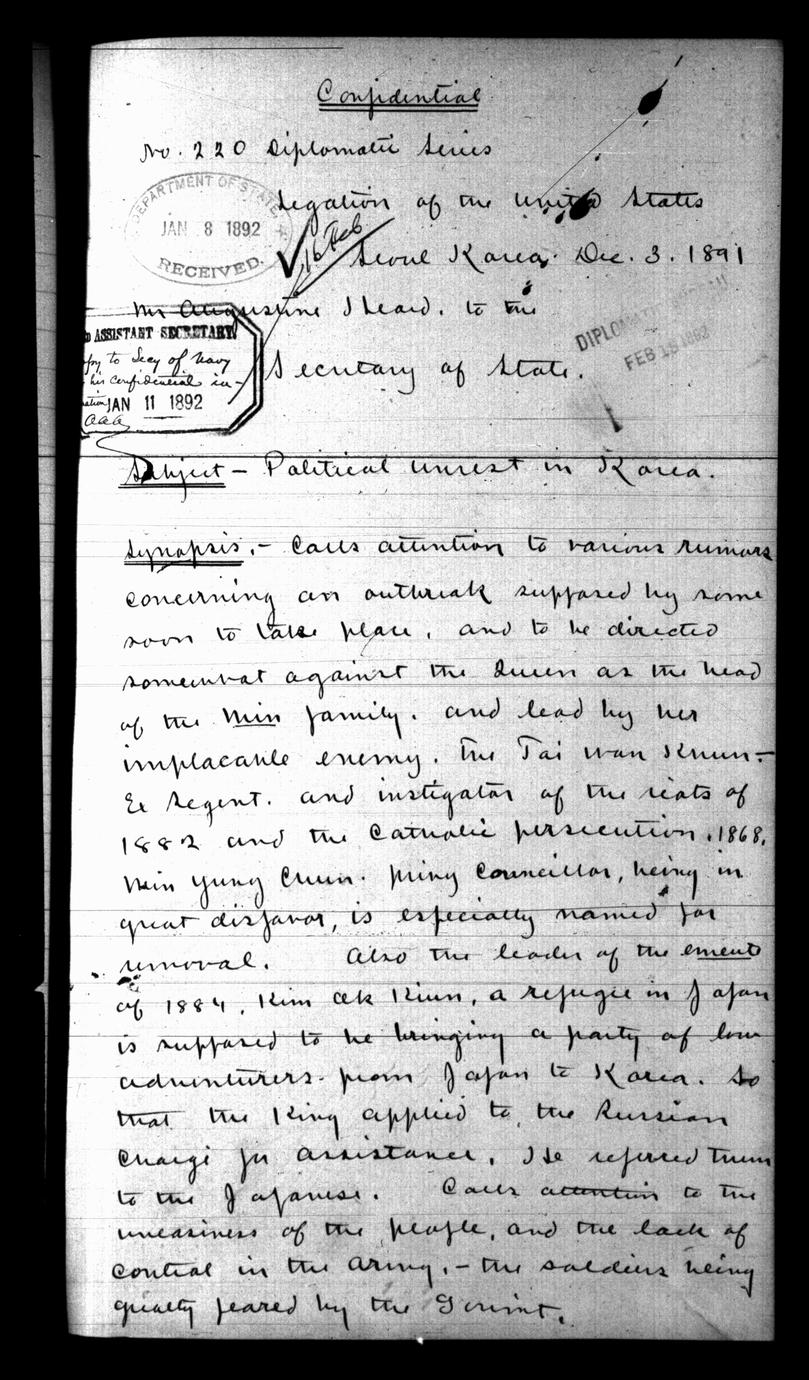 Confidential
No. 220 Diplomatic Series
DEPARTMENT OF STATE
JAN 8 1892
RECEIVED.
Legation of the United States
16 Feb
Seoul Korea. Dec. 3. 1891
Mr Augustine Heard. to the
ASSISTANT SECRETARY
Copy to Secy of Navy
his confidential in-
JAN 11 1892
DIPLOMATIC BUREAU
FEB 1892
Secretary of State.
Subject - Political unrest in Korea.
Synopsis. - Calls attention to various rumors
concerning an outbreak supposed by some
soon to take place, and to be directed
somewhat against the Queen as the head
of the Min family. and lead by her
implacable enemy. The Tai wan Khun. -
Ex Regent. and instigator of the riots of
1882 and the Catholic persecution. 1868.
Min Yung Chun. privy Councillor, being in
great disfavor, is especially named for
removal. Also the leader of the emeute
of 1884, Kim Ok Kiun, a refugee in Japan
is supposed to be bringing a party of low
adventurers from Japan to Korea. So
that the King applied to the Russian
Chargé for assistance. He referred them
to the Japanese. Calls attention to the
uneasiness of the people, and the lack of
control in the Army. - the soldiers being
greatly feared by the Govmt.